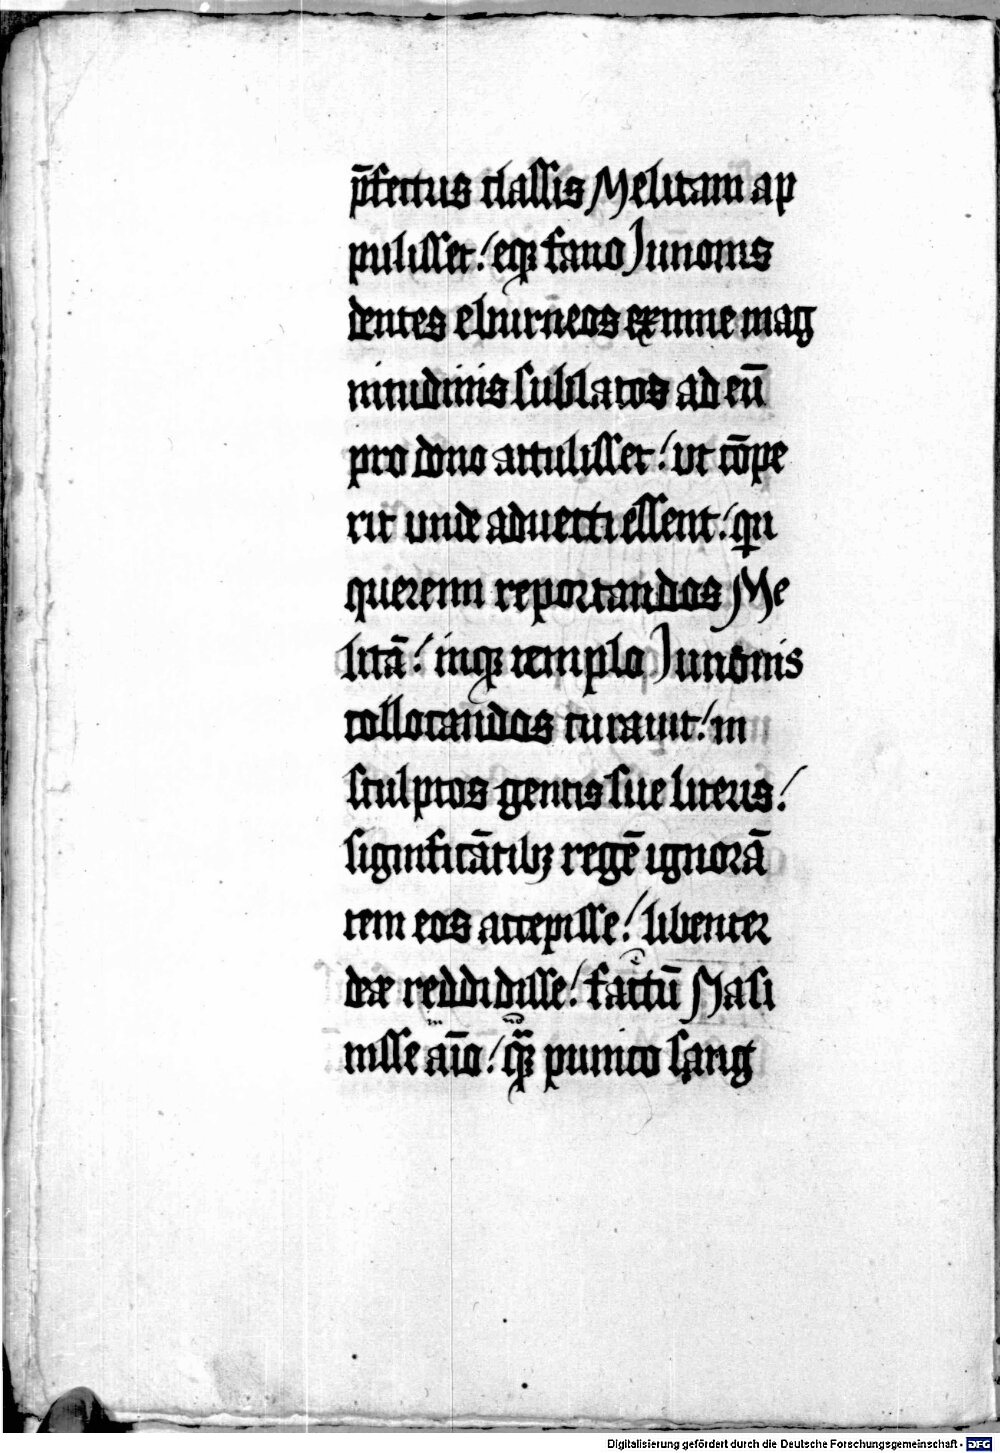 p̄fectus classis Melitam ap
pulisset / eqꝫ fano Junonis
dentes eburneos eximie mag
nitudinis sublatos ad eū
pro dono attulisset / ut cōpe
rit unde aduecti essent / qn
queremi reportandos Me
litā / inqꝫ templo Junonis
collocandos curauit / in
sculptos gentis sue literis /
significātibꝫ regē ignorā
tem eos accepisse / libenter
deæ reddidisse / factū Masi
nisse aīo / qꝫ punico sang
Digitalisierung gefördert durch die Deutsche Forschungsgemeinschaft - DFG